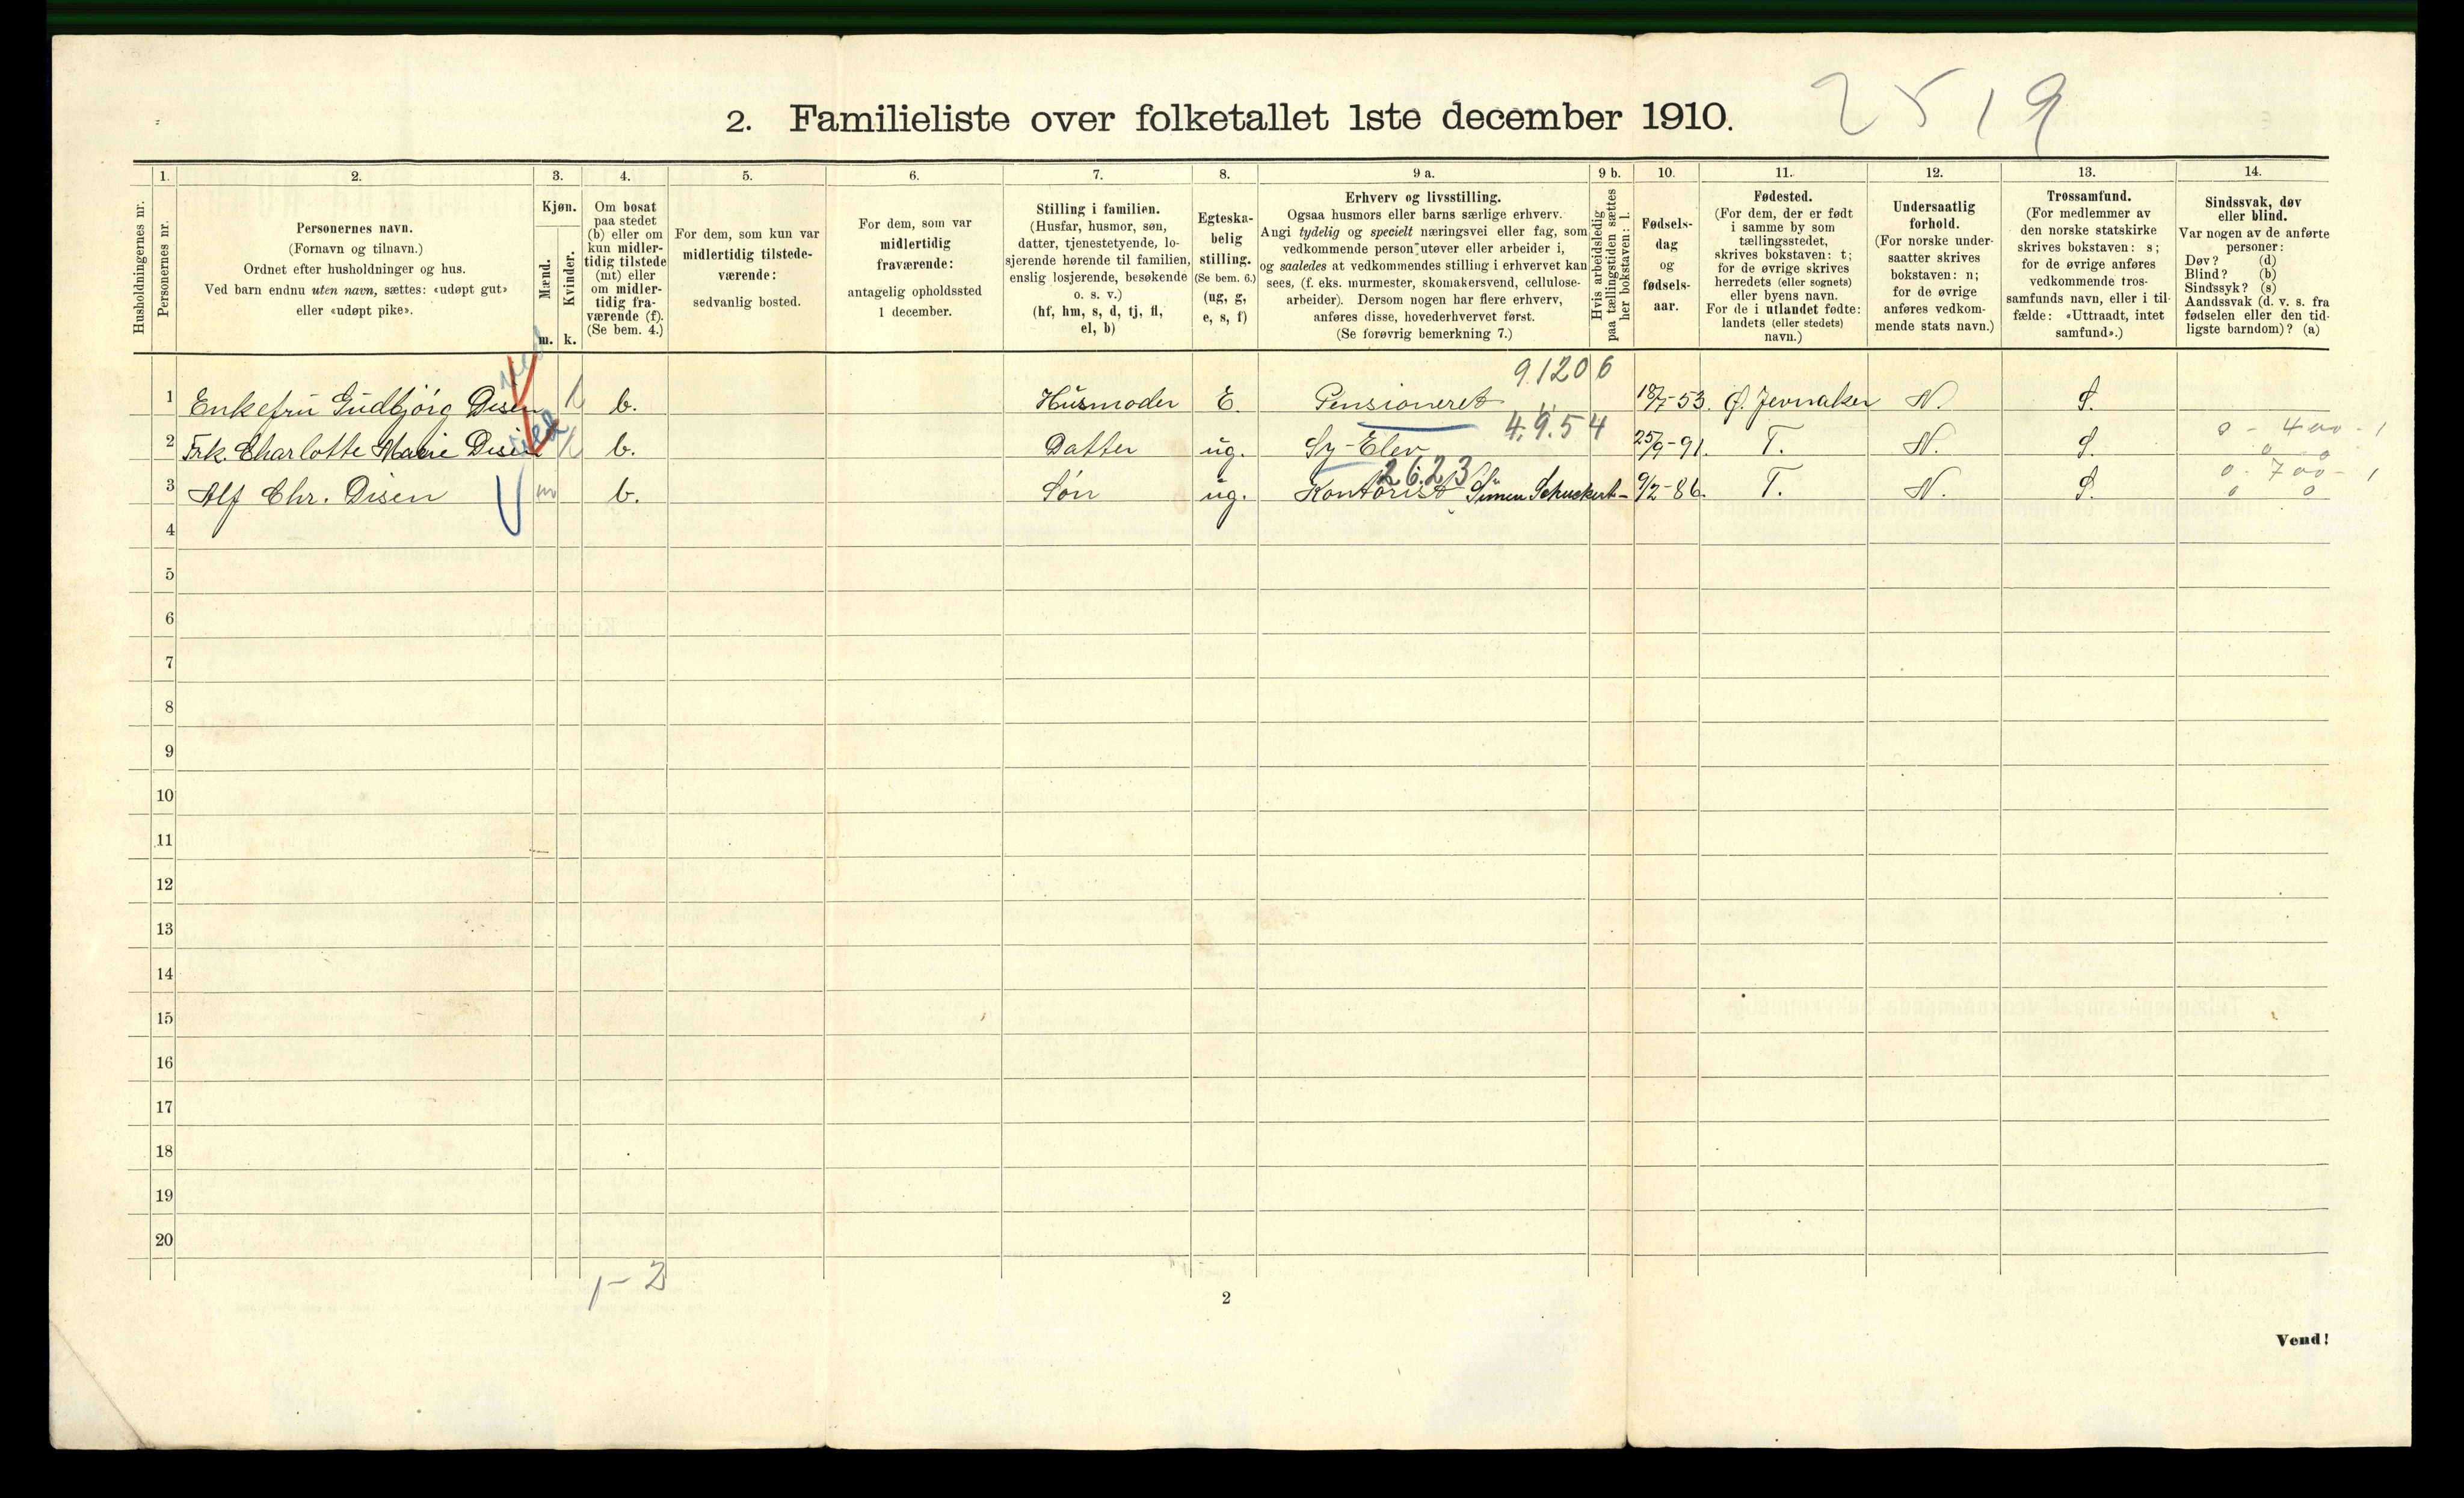 2519
2. Familieliste over folketallet 1ste december 1910.
Husholdningernes nr.
1. Personernes nr.
2. Personernes navn.
(Fornavn og tilnavn.)
Ordnet efter husholdninger og hus.
Ved barn endnu uten navn, sættes: «udøpt gut»
eller «udøpt pike».
3. Kjøn.
Mænd. m.
Kvinder. k.
4. Om bosat
paa stedet
(b) eller om
kun midler-
tidig tilstede
(mt) eller
om midler-
tidig fra-
værende (f).
(Se bem. 4.)
5. For dem, som kun var
midlertidig tilstede-
værende:
sedvanlig bosted.
6. For dem, som var
midlertidig
fraværende:
antagelig opholdssted
1 december.
7. Stilling i familien.
(Husfar, husmor, søn,
datter, tjenestetyende, lo-
sjerende hørende til familien,
enslig losjerende, besøkende
o. s. v.)
(hf, hm, s, d, tj, fl,
el, b)
8. Egteska-
belig
stilling.
(Se bem. 6.)
(ug, g,
e, s, f)
9 a. Erhverv og livsstilling.
Ogsaa husmors eller barns særlige erhverv.
Angi tydelig og specielt næringsvei eller fag, som
vedkommende person utøver eller arbeider i,
og saaledes at vedkommendes stilling i erhvervet kan
sees, (f. eks. murmester, skomakersvend, cellulose-
arbeider). Dersom nogen har flere erhverv,
anføres disse, hovederhvervet først.
(Se forøvrig bemerkning 7.)
9 b. Hvis arbeidsledig
paa tællingstiden sættes
her bokstaven: l.
10. Fødsels-
dag
og
fødsels-
aar.
11. Fødested.
(For dem, der er født
i samme by som
tællingsstedet,
skrives bokstaven: t;
for de øvrige skrives
herredets (eller sognets)
eller byens navn.
For de i utlandet fødte:
landets (eller stedets)
navn.)
12. Undersaatlig
forhold.
(For norske under-
saatter skrives
bokstaven: n;
for de øvrige
anføres vedkom-
mende stats navn.)
13. Trossamfund.
(For medlemmer av
den norske statskirke
skrives bokstaven: s;
for de øvrige anføres
vedkommende tros-
samfunds navn, eller i til-
fælde: «Uttraadt, intet
samfund».)
14. Sindssvak, døv
eller blind.
Var nogen av de anførte
personer:
Døv? (d)
Blind? (b)
Sindssyk? (s)
Aandssvak (d. v. s. fra
fødselen eller den tid-
ligste barndom)? (a)
9.1206
1 Enkefru Gudbjörg Disen k b. Husmoder E. Pensioneret 18/7-53. Ø. Jevnaker N. S.
4.9.54
0 - 400 - 1
2 Frk. Charlotte Marie Disen k b. Datter ug. Sy-Elev 25/9-91. T. N. S. 0 0
2.6.23
0 - 700 - 1
3 Alf Chr. Disen m b. Søn ug. Kontorist Simen Schuckert- 9/2-86. T. N. S. 0 0
4
5
6
7
8
9
10
11
12
13
14
15
16
17
18
19
20
1-2
2
Vend!